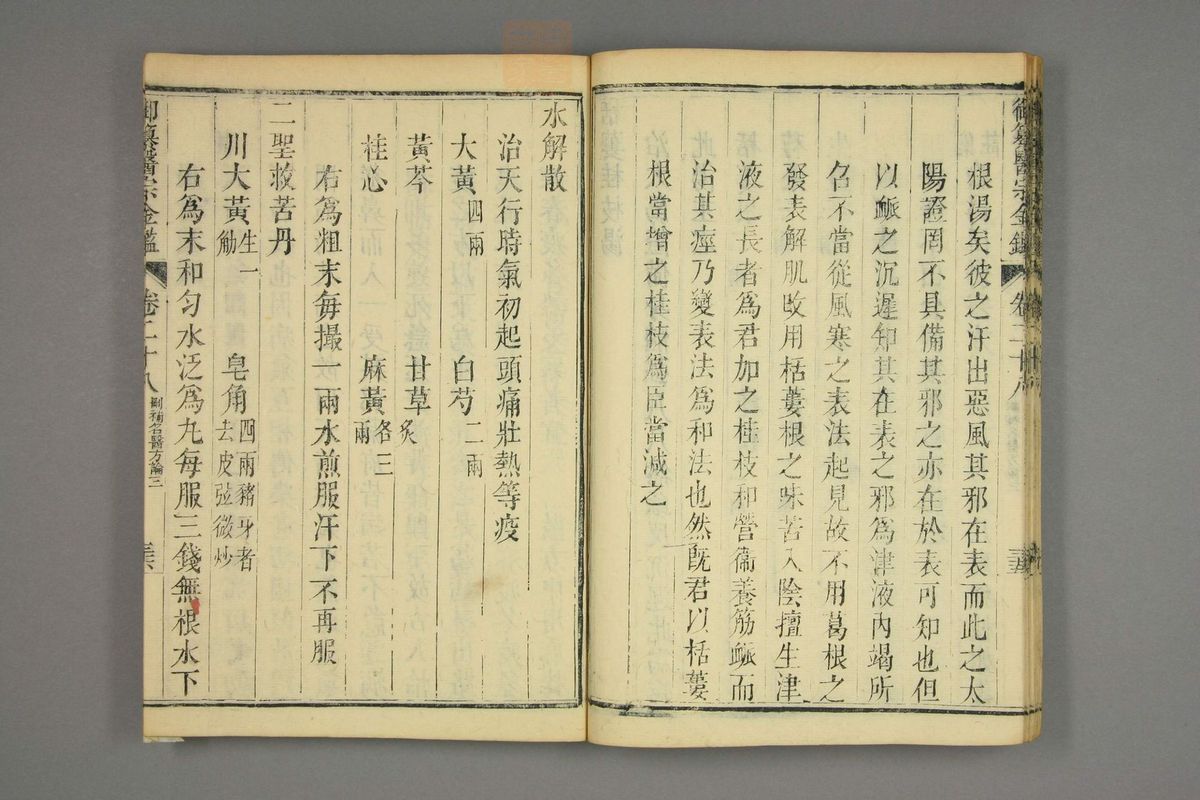 御纂醫宗金鑑 卷二十八
根湯矣彼之汗出惡風其邪在表而此之太
陽證罔不具備其邪之亦在於表可知也但
以䘑之沉遲知其在表之邪爲津液內竭所
名不當從風寒之表法起見故不用葛根之
發表解肌改用栝蔞根之味苦入陰擅生津
液之長者爲君加之桂枝和營衞養筋䘑而
治其痙乃變表法爲和法也然旣君以栝蔞
根當增之桂枝爲臣當減之
水解散
治天行時氣初起頭痛壯熱等疫
大黃四兩 白芍二兩
黃芩 甘草炙
桂心 麻黃各三兩
右爲粗末每撮一兩水煎服汗下不再服
二聖救苦丹
川大黃生一觔 皂角四兩豬牙者去皮弦微炒
右爲末和勻水泛爲丸每服三錢無根水下
御纂醫宗金鑑 卷二十八 刪補名醫方論三